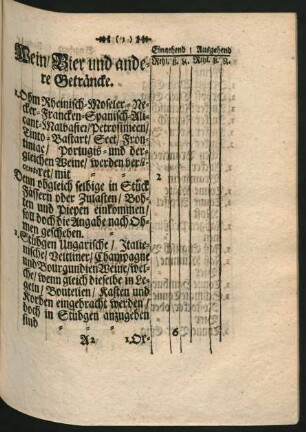 ( 3. )
Eingehend | Ausgehend
Wein/ Bier und ande-
re Geträncke.
Rthl. ß. Rthl. ß.
1. Ohm Rheinisch-Moseler-Ne-
cker-Francken-Spanisch-Ali-
cant-Malbasier/Petrosimeen/
Tinto-Bastart/ Sect/ Fron-
timiac/ Portugis- und der-
gleichen Weine/ werden ver-
mit 2
Denn obgleich selbige in Stück
Fässern oder Zulasten/ Boh-
ten und Piepen einkommen/
soll doch die Angabe nach Oh-
men geschehen.
Stübgen Ungarische/ Italie-
nische/ Veltliner/ Champagne
und Bourgundien Weine/ wel-
che/ wenn gleich dieselbe in Le-
geln/ Bouteilen/ Kasten und
Körben eingebracht werden/
doch in Stübgen anzugeben
sind 6
A2 1. Ox-